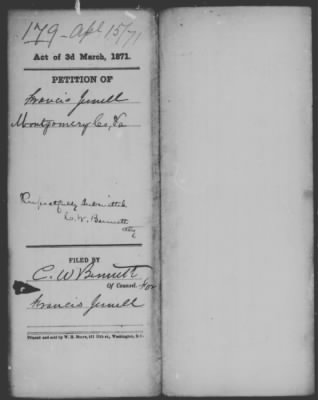 179 - Apl 15/71
Act of 3d March, 1871.
PETITION OF
Francis Jewell
Montgomery Co, Va
Respectfully Submitted
C. W. Bennett
atty
FILED BY
C. W Bennett
Of Counsel. for
Francis Jewell
Printed and sold by W. H. Moore, 511 11th st., Washington, D. C.